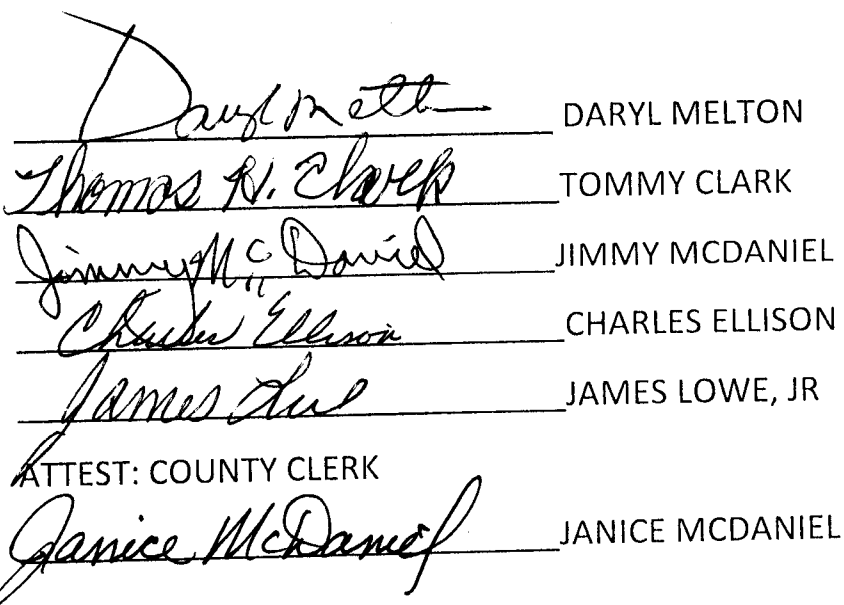 Daryl Melton DARYL MELTON
Thomas H. Clark TOMMY CLARK
Jimmy McDaniel JIMMY MCDANIEL
Charles Ellison CHARLES ELLISON
James Lowe JAMES LOWE, JR
ATTEST: COUNTY CLERK
Janice McDaniel JANICE MCDANIEL